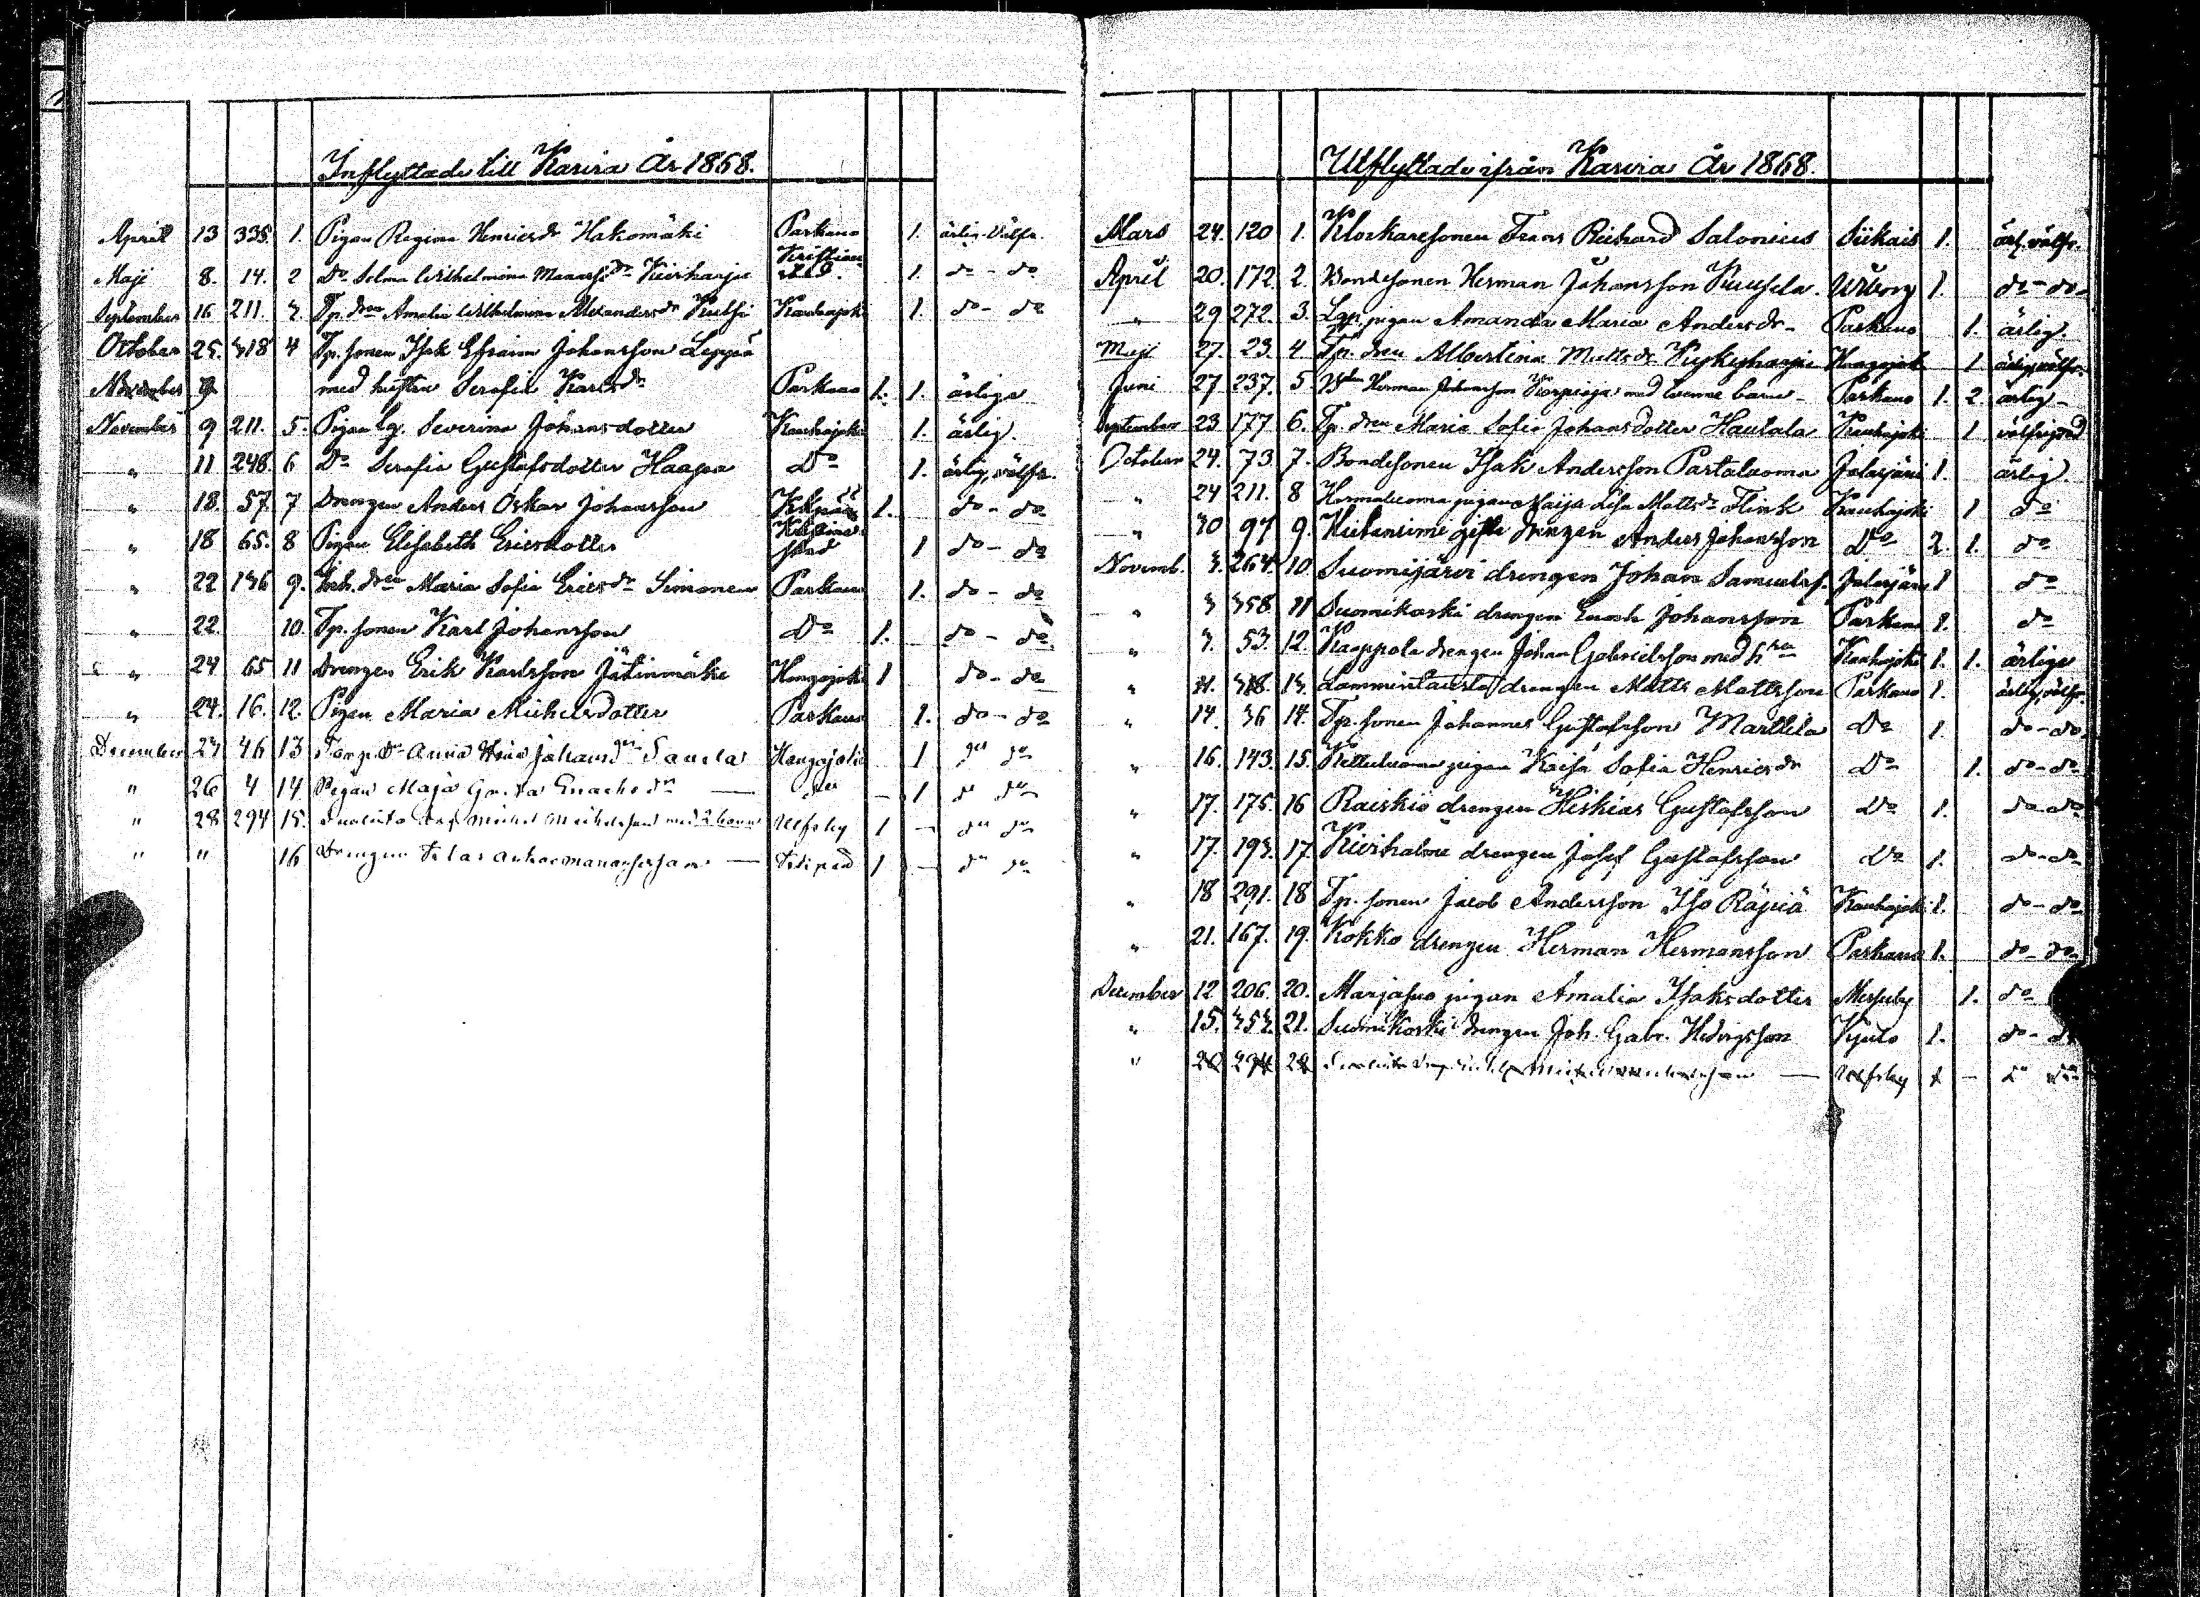 Inflyttade till Karvia År 1868.
April 13 335. 1. Pigan Regina Henricsdr Hakomäki Parkano 1. ärlig. välfr.
Maji 8. 14. 2 Do Selma Wilhelmina Kiviharju Kristinestad. 1. do - do
September 16 211 3. Tp. dren Amalia Wilhelmina Alexandersdr Kauhajoki 1. do - do
October 25. 318 4 Tp. sonen Isak Efraim Johansson Leppä
November 9 med hustru Serafia Karlsdr Parkano 1. 1. ärliga
November 9 211. 5. Pigan Severina Johansdotter Kauhajoki 1. ärlig.
" 11 248. 6 Do Serafia Gustafsdotter Haapa Do 1. ärlig, välfr.
" 18. 57. 7 Drengen Anders Oskar Johansson 1. do - do
" 18 65. 8 Pigan Elisabeth Ericsdotter 1 do - do
" 22 136 9. Inh. dren Maria Sofia Ericsdr Simonen Parkano 1. do - do
" 22. 10. Tp. sonen Karl Johansson Do 1. do - do
" 24 65 11 Drengen Erik Karlsson Jätinmäki Hongojoki 1 do - do
" 24. 16. 12. Pigan Maria Michelsdotter Parkano 1. do - do
December 23 46 13 Anna Johansdr Hongojoki 1 do do
" 26 4 14 Pigan Maja Greta Enochsdr do - 1 do do
" 28 294 15. Michel Michelsson med 2 barn Ulfsby 1 - do do
" " 16 Drengen 1 - do do
Utflyttade ifrån Karvia År 1868.
Mars 24. 120 1. Klockaresonen Frans Richard Salonius Siikais 1. ärl. välfr.
April 20. 172. 2. Bondesonen Herman Johansson Kuusela. Wiborg 1. do - do
" 29 272. 3. Lgp. pigan Amanda Maria Andersdr - Parkano 1. ärlig.
Maji 27. 23. 4 Tp. dren Albertina Mattsdr Kyykyharju Hongojoki 1 ärlig, välfr.
Juni 27 237. 5. Herman Johansson Korpioja med tvenne barn - Parkano 1. 2. ärlig -
September 23 177 6. Tp. dren Maria Sofia Johansdotter Hautala Kauhajoki 1 välfrejdad
October 24. 73. 7. Bondesonen Isak Andersson Partaluoma Jalasjärvi 1. ärlig.
" 24 211. 8 pigan Maija Lisa Mattsdr Flink Kauhajoki 1 do
" 30 97 9. gifte drengen Anders Johansson Do 2. 1. do
Novemb. 3. 264. 10 Suomijärvi drengen Johan Samuelss. Jalasjärvi 1 do
" 3 358. 11 Suomikoski drengen Enoch Johansson Parkano 1. do
" 3. 53. 12. Kaappola drengen Johan Gabrielsson med hru Kauhajoki 1. 1. ärliga
" 11. 318. 13. Lamminlausta drengen Matts Mattsson Parkano 1. ärlig, välfr.
" 14. 36 14. Tp. sonen Johannes Gustafsson Marttila Do 1. do - do
" 16. 143. 15. Kettuluoma pigan Kaisa Sofia Henricsdr Do 1. do - do
" 17. 175. 16 Raiskiö drengen Hiskias Gustafsson Do 1. do - do
" 17. 193. 17. Kiviholma drengen Josef Gustafsson Do 1. do - do
" 18 291. 18 Tp. sonen Jacob Andersson Iso Räjiä Kauhajoki 1. do - do
" 21. 167. 19. Kokko drengen Herman Hermansson Parkano 1. do - do
December 12 206. 20. Marjasuo pigan Amalia Isaksdotter 1. do
" 15. 353. 21. Suomikoski drengen Joh. Gabr. Kyulo 1. do - do
" 28 294 22 Ulfsby 1 - do do